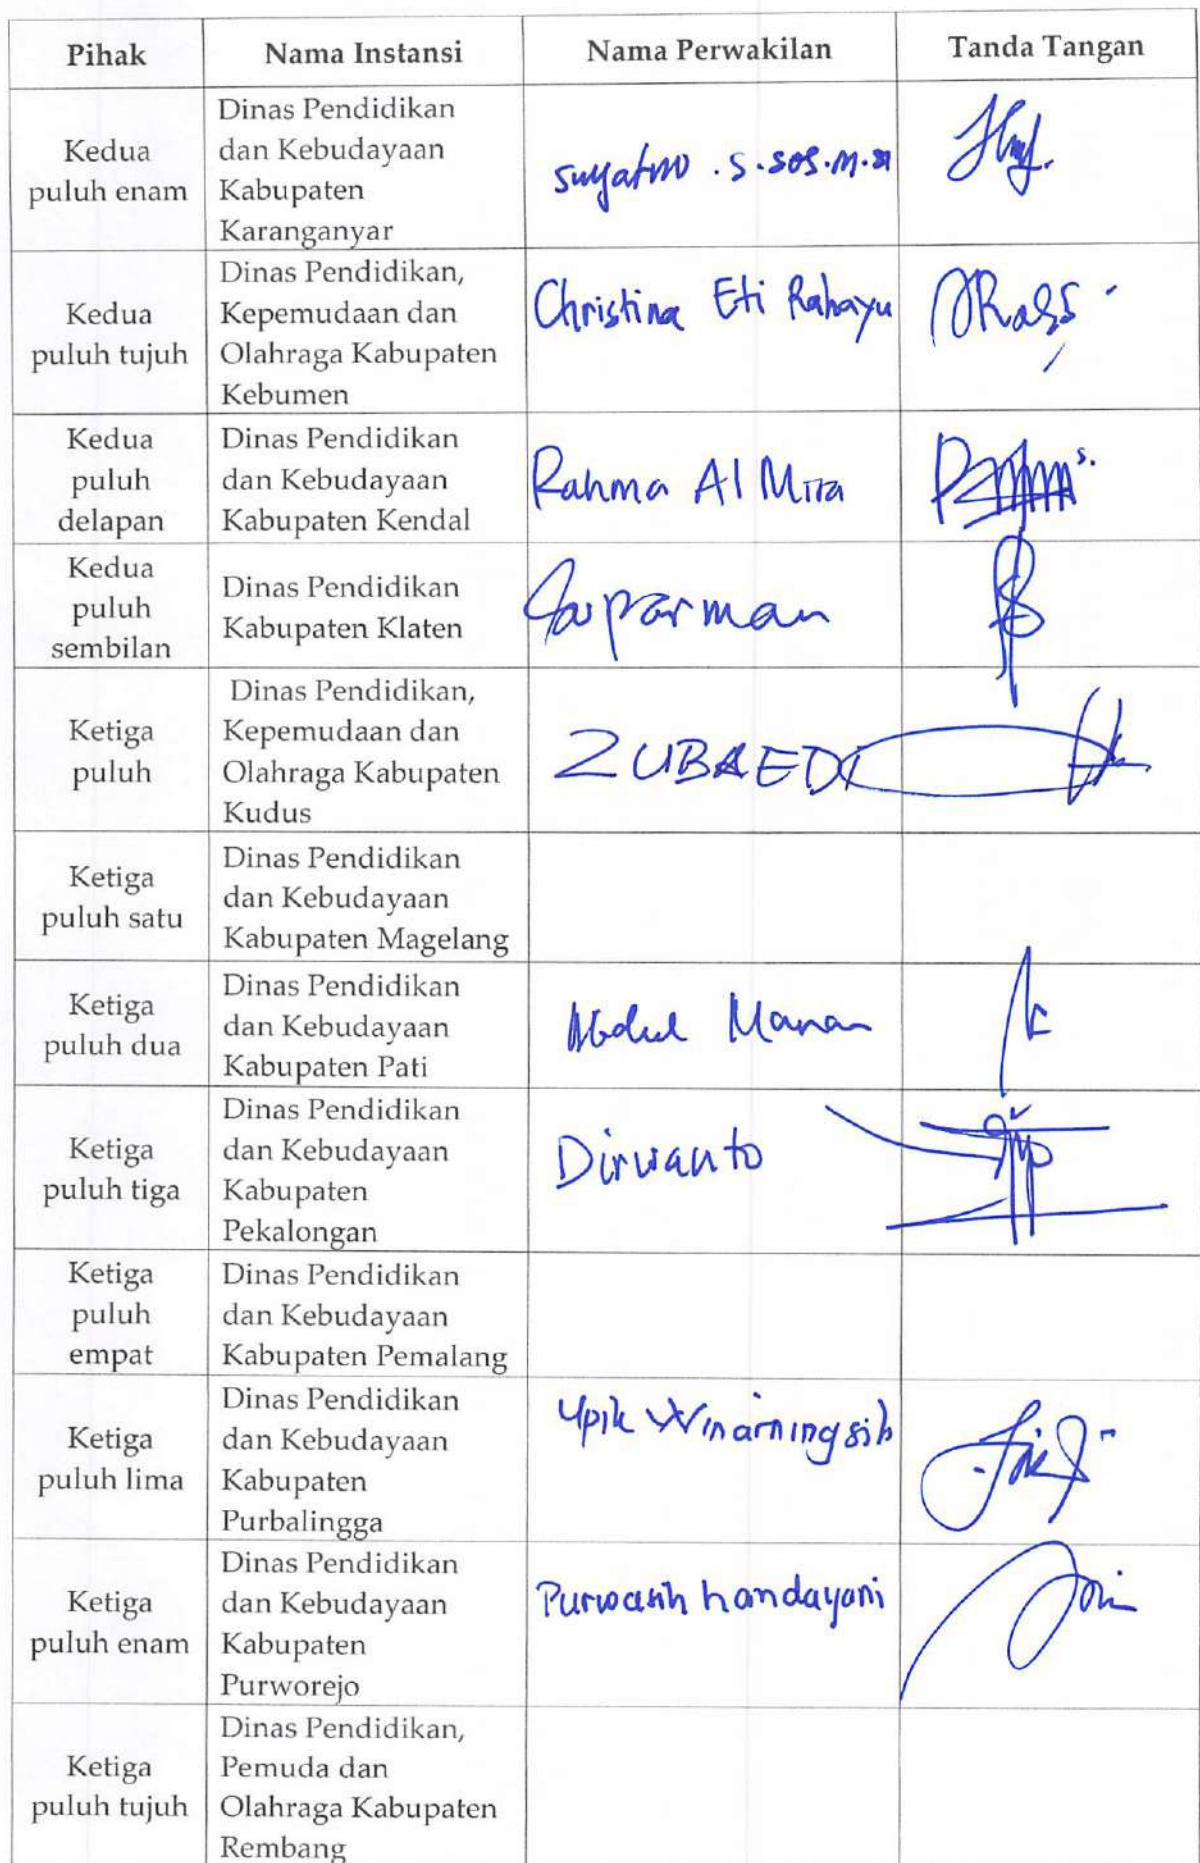 Pihak Nama Instansi Nama Perwakilan Tanda Tangan
Kedua
puluh enam
Dinas Pendidikan
dan Kebudayaan
Kabupaten
Karanganyar
Suyatno .S.SOS.M.SI
Kedua
puluh tujuh
Dinas Pendidikan,
Kepemudaan dan
Olahraga Kabupaten
Kebumen
Christina Eti Rahayu
Kedua
puluh
delapan
Dinas Pendidikan
dan Kebudayaan
Kabupaten Kendal
Rahma Al Mira
Kedua
puluh
sembilan
Dinas Pendidikan
Kabupaten Klaten
Suparman
Ketiga
puluh
Dinas Pendidikan,
Kepemudaan dan
Olahraga Kabupaten
Kudus
ZUBAEDI
Ketiga
puluh satu
Dinas Pendidikan
dan Kebudayaan
Kabupaten Magelang
Ketiga
puluh dua
Dinas Pendidikan
dan Kebudayaan
Kabupaten Pati
Abdul Manan
Ketiga
puluh tiga
Dinas Pendidikan
dan Kebudayaan
Kabupaten
Pekalongan
Dirwanto
Ketiga
puluh
empat
Dinas Pendidikan
dan Kebudayaan
Kabupaten Pemalang
Ketiga
puluh lima
Dinas Pendidikan
dan Kebudayaan
Kabupaten
Purbalingga
Upik Winarningsih
Ketiga
puluh enam
Dinas Pendidikan
dan Kebudayaan
Kabupaten
Purworejo
Purwasih handayani
Ketiga
puluh tujuh
Dinas Pendidikan,
Pemuda dan
Olahraga Kabupaten
Rembang